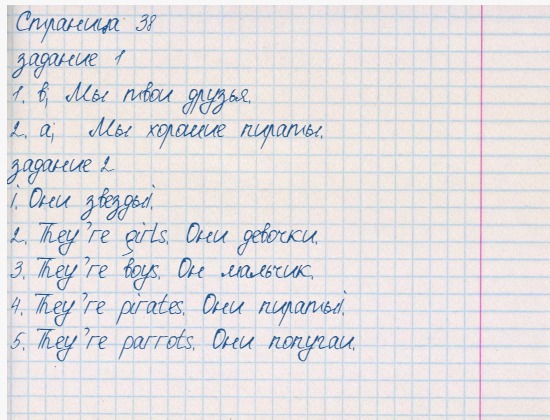 Страница 38
задание 1
1. в; Мы твои друзья.
2. а; Мы хорошие пираты.
задание 2
1. Они звезды.
2. They're girls. Они девочки.
3. They're boys. Он мальчик.
4. They're pirates. Они пираты.
5. They're parrots. Они попугаи.